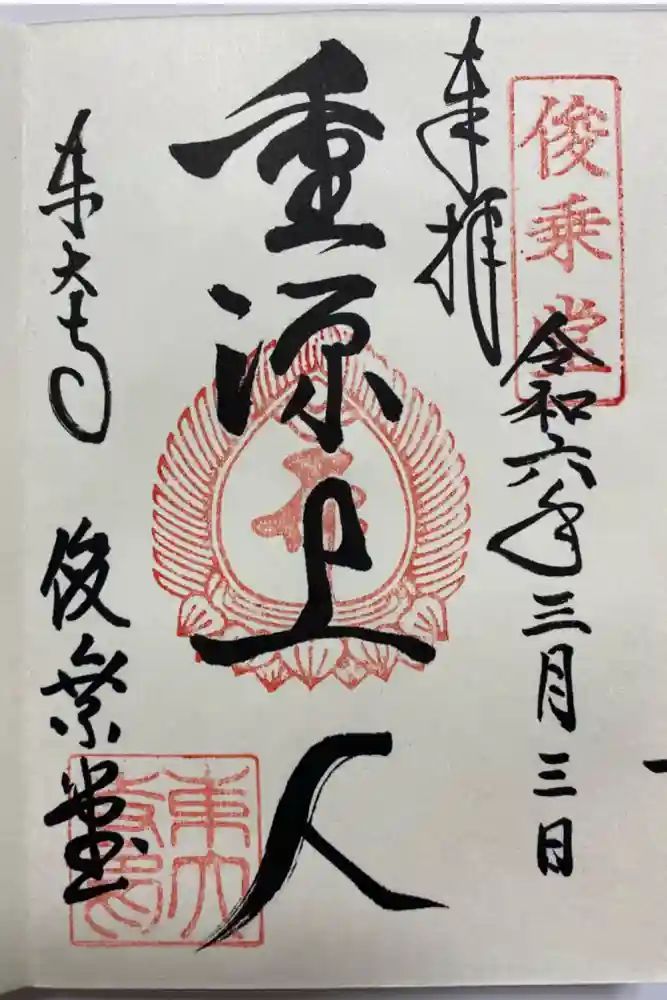 俊乗堂
奉拝
令和六年三月三日
重源上人
東大寺
俊乗堂
東大寺印